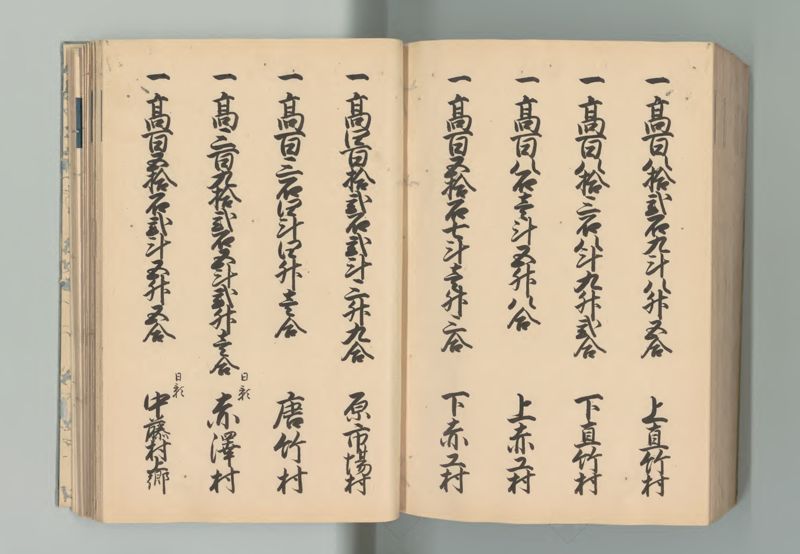 一 髙百八拾弐石九斗八升五合 上直竹村
一 髙百八拾三石八斗九升弐合 下直竹村
一 髙百八石壱斗五升八合 上赤工村
一 髙百五拾石七斗壱升三合 下赤工村
一 髙四百拾弐石弐斗三升九合 原市場村
一 髙百三石四斗四升壱合 唐竹村
一 髙三百九拾弐石五斗弐升壱合 赤澤村
一 髙百五拾石弐斗五升五合 中藤村上郷